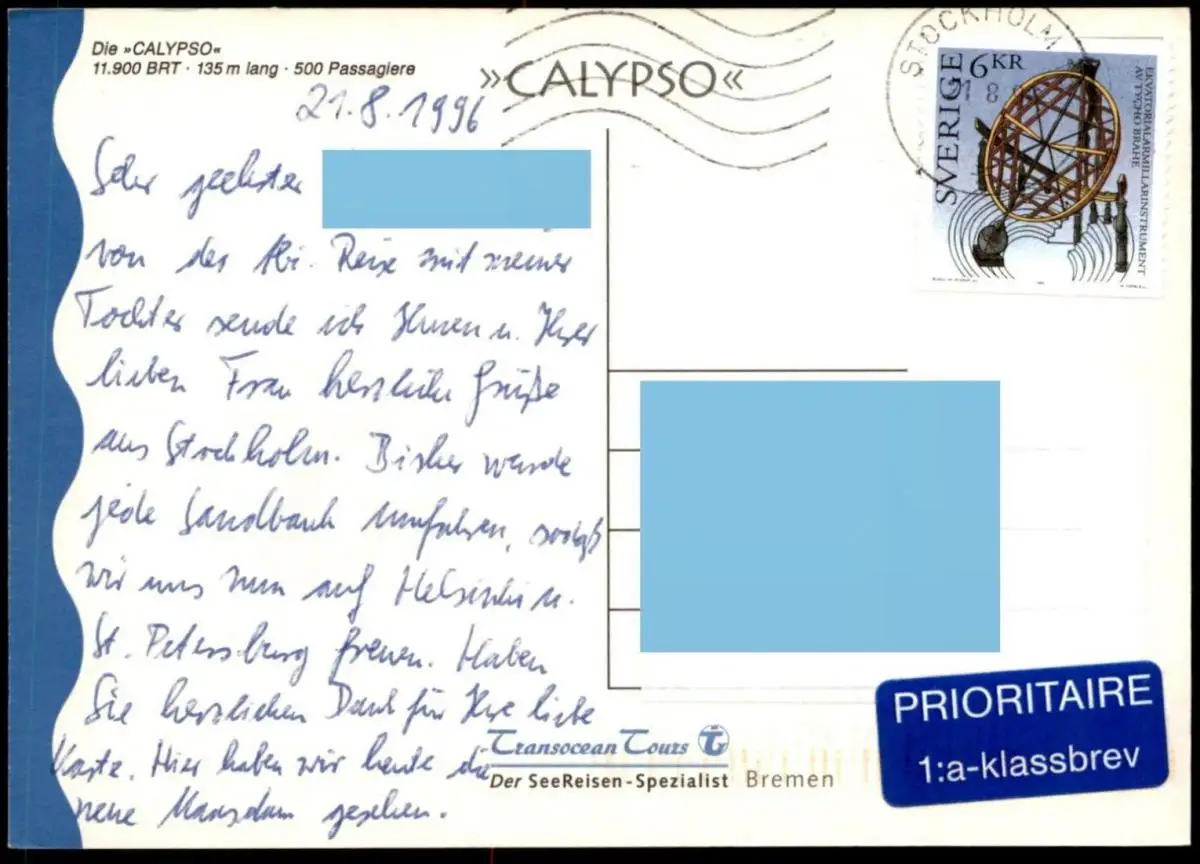 Die »CALYPSO«
11.900 BRT · 135 m lang · 500 Passagiere
»CALYPSO«
21.8.1996
Sehr geehrter
von der Abi-Reise mit meiner
Tochter sende ich Ihnen u. Ihrer
lieben Frau herzliche Grüße
aus Stockholm. Bisher wurde
jede Sandbank umfahren, sodaß
wir uns nun auf Helsinki u.
St. Petersburg freuen. Haben
Sie herzlichen Dank für Ihre liebe
Karte. Hier haben wir heute die
neue Maasdam gesehen.
STOCKHOLM
SVERIGE 6 KR
EKVATORIALARMILLARINSTRUMENT
AV TYCHO BRAHE
Transocean Tours
Der SeeReisen-Spezialist Bremen
PRIORITAIRE
1:a-klassbrev